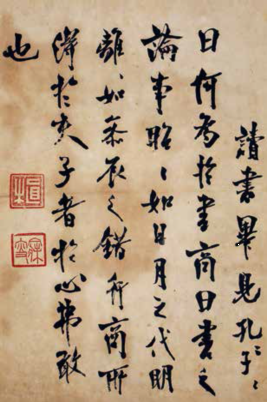 讀書畢見孔子〻
曰何為於書商曰書之
論事昭〻如日月之代明
離〻如参辰之錯行商所
得於夫子者於心弗敢
也